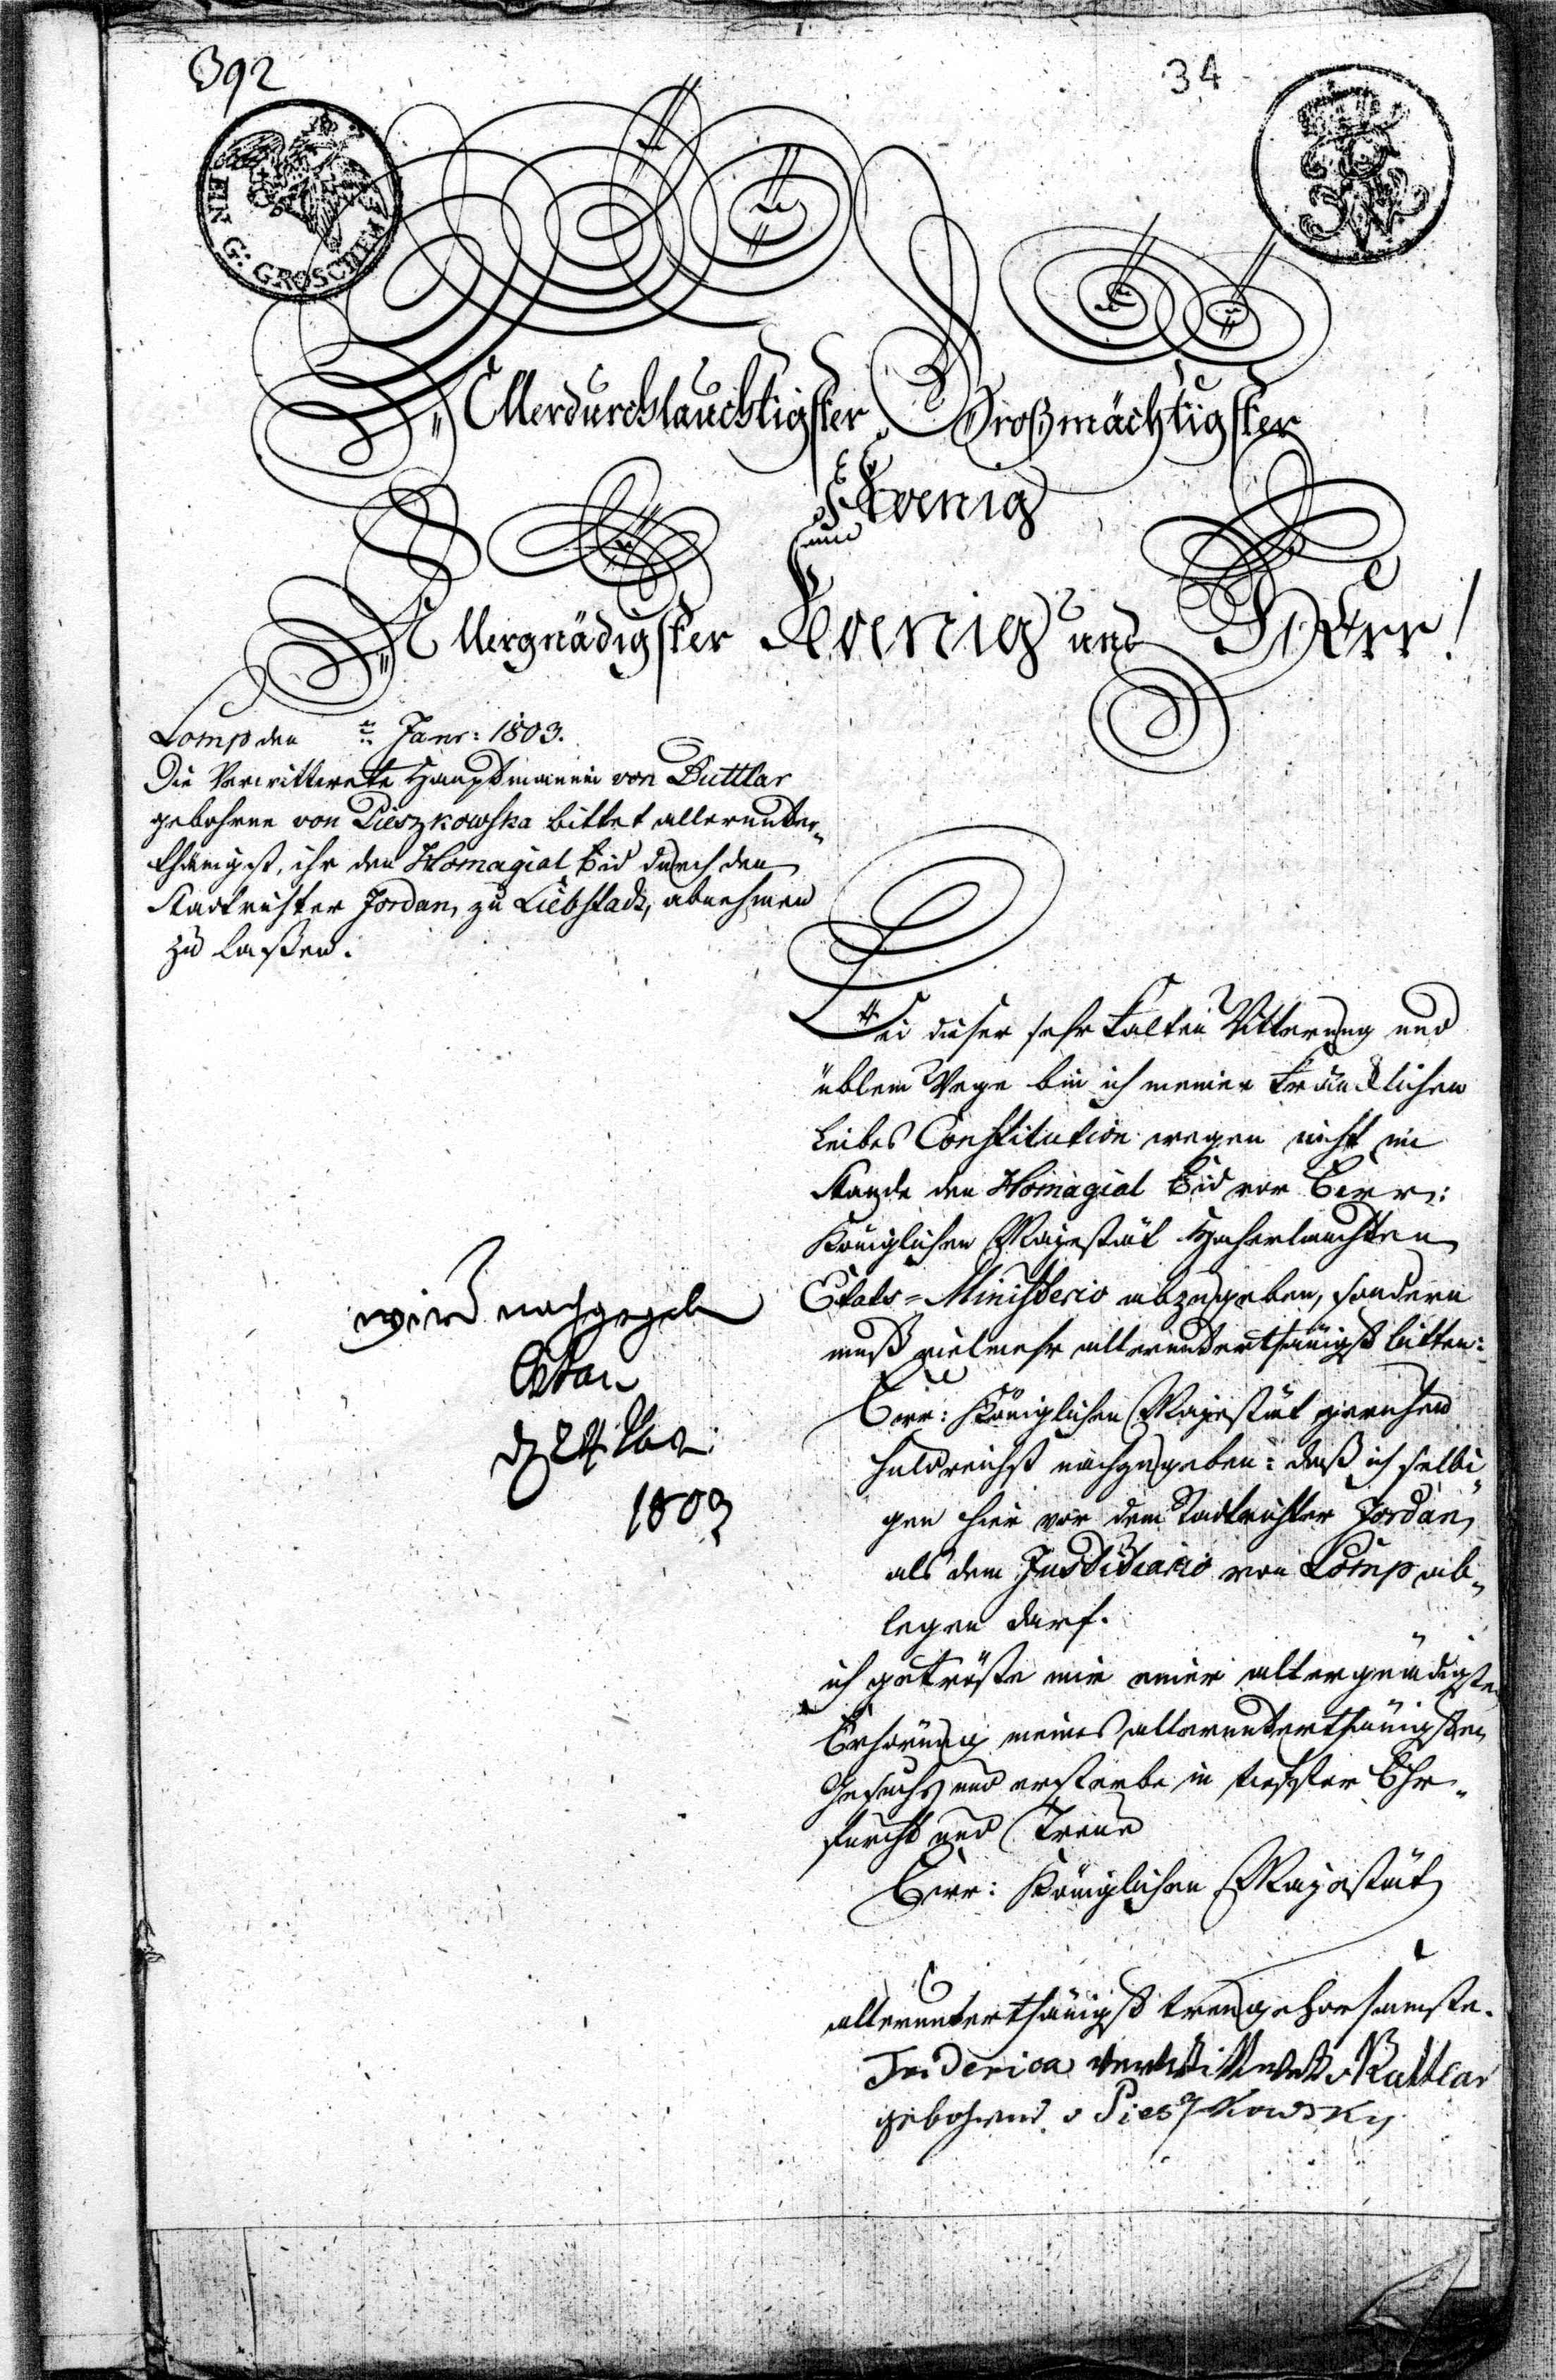 392
34
EIN G: GROSCHEN
FWR
Allerdurchlauchtigster Großmächtigster
Koenig
und
Allergnädigster Koenig und Herr!
Lomp den ten Janr: 1803.
Die Verwittwete Hauptmannin von Buttlar
gebohrne von Pieszkowska bittet allerunter„
thänigst, ihr den Homagial Eid durch den
Stadtrichter Jordan, zu Liebstadt, abnehmen
zu laßen.
Bei dieser sehr kalten Witterung und
üblem Wege bin ich meiner kränklichen
Leibes Constitution wegen nicht im
Stande den Homagial Eid vor Ewr:
Königlichen Majestät Hocherlauchten
Etats=Ministerio abzugeben, sondern
muß vielmehr allerunterthänigst bitten:
Ewr: Königlichen Majestät geruhen
huldreichst nachzugeben: daß ich selbi„
gen hier vor dem Stadtrichter Jordan,
als dem Justitiario von Lomp ab„
legen darf.
ich getröste mir einer allergnädigsten
Erhörung meines allerunterthänigsten
Gesuchs und ersterbe in tiefster Ehr„
furcht und Treue
Ewr: Königlichen Majestät
wird nachgegeben
d 24
1803
allerunterthänigst treugehorsamste.
Friderica verwittwete v Buttlar
gebohrne v Pieszkowsky